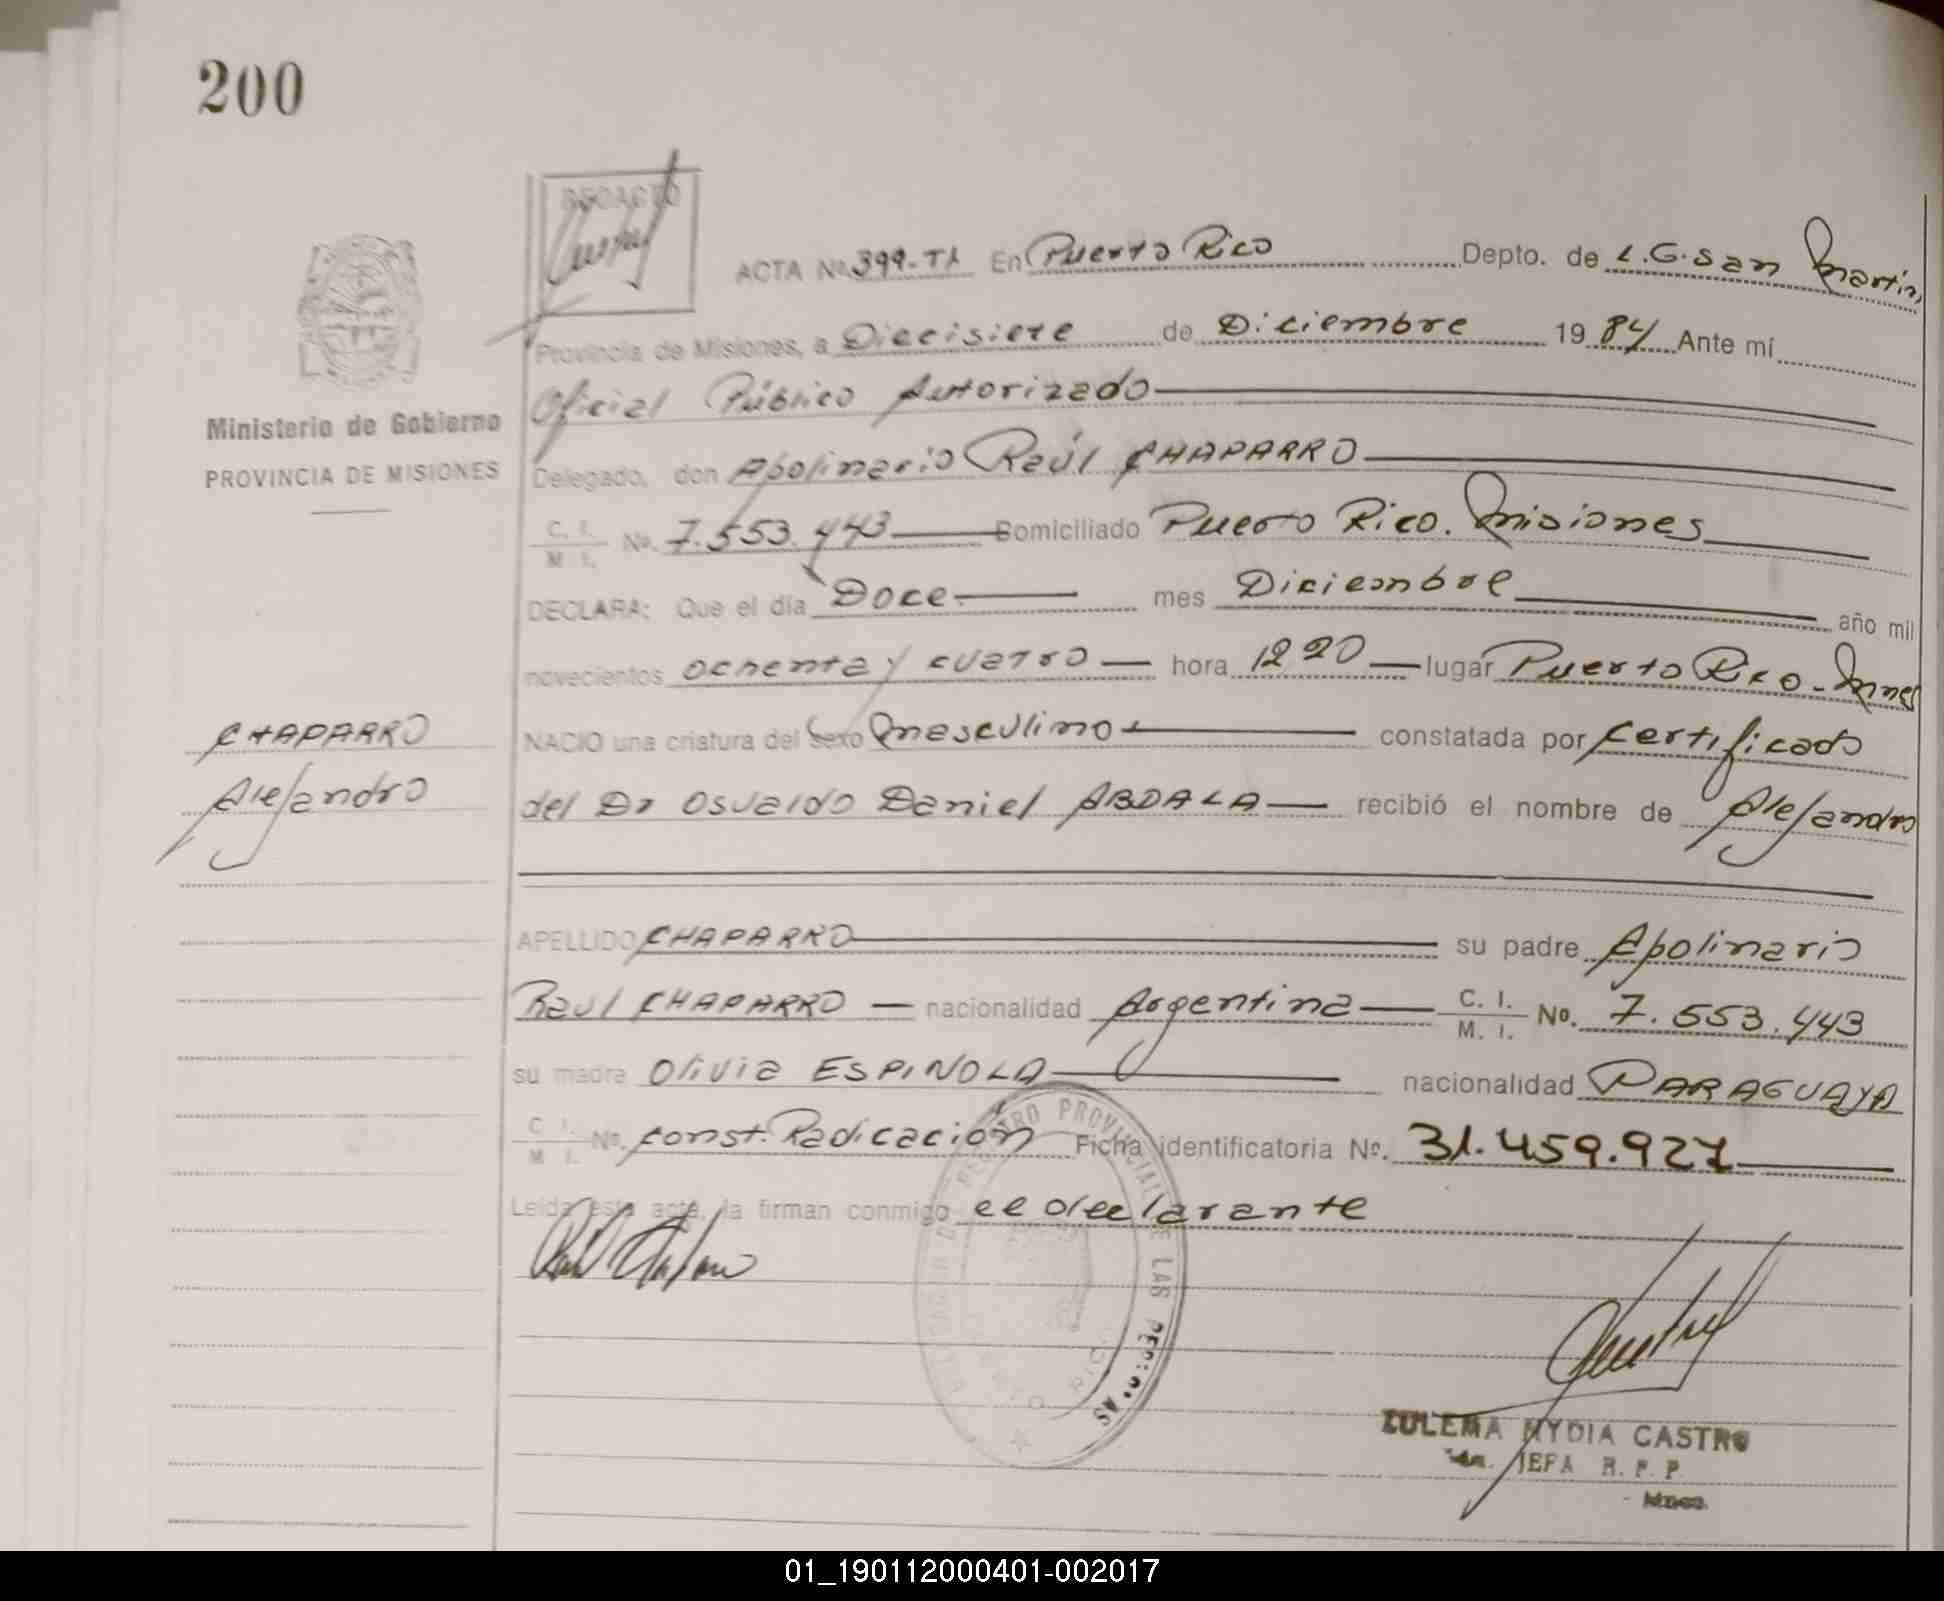 200
REDACTO
ACTA No. 399-TI En Puerto Rico Depto. de L.G. San Martín,
Provincia de Misiones, a Diecisiete de Diciembre 1984 Ante mí
Oficial Público Autorizado
Ministerio de Gobierno
PROVINCIA DE MISIONES
Delegado, don Apolinario Raúl CHAPARRO
C. I. M. I. No. 7.553.443 Domiciliado Puerto Rico. Misiones
DECLARA: Que el día Doce mes Diciembre año mil
novecientos ochenta y cuatro hora 12 20 lugar Puerto Rico - Mnes
CHAPARRO
Alejandro
NACIO una criatura del sexo masculino constatada por Certificado
del Dr Osvaldo Daniel ABDALA recibió el nombre de Alejandro
APELLIDO CHAPARRO su padre Apolinario
Raul CHAPARRO nacionalidad Argentina C. I. M. I. No. 7.553.443
su madre Olivia ESPINOLA nacionalidad PARAGUAYA
C. I. M. I. No. Const. Radicación Ficha identificatoria No. 31.459.927
Leída esta acta, la firman conmigo el declarante
REGISTRO PROVINCIAL DE LAS PERSONAS
ZULEMA NYDIA CASTRO
JEFA R. P. P.
Mnes.
01_190112000401-002017